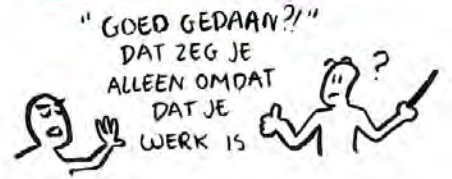 "GOED GEDAAN?!"
DAT ZEG JE
ALLEEN OMDAT
DAT JE
WERK IS
?